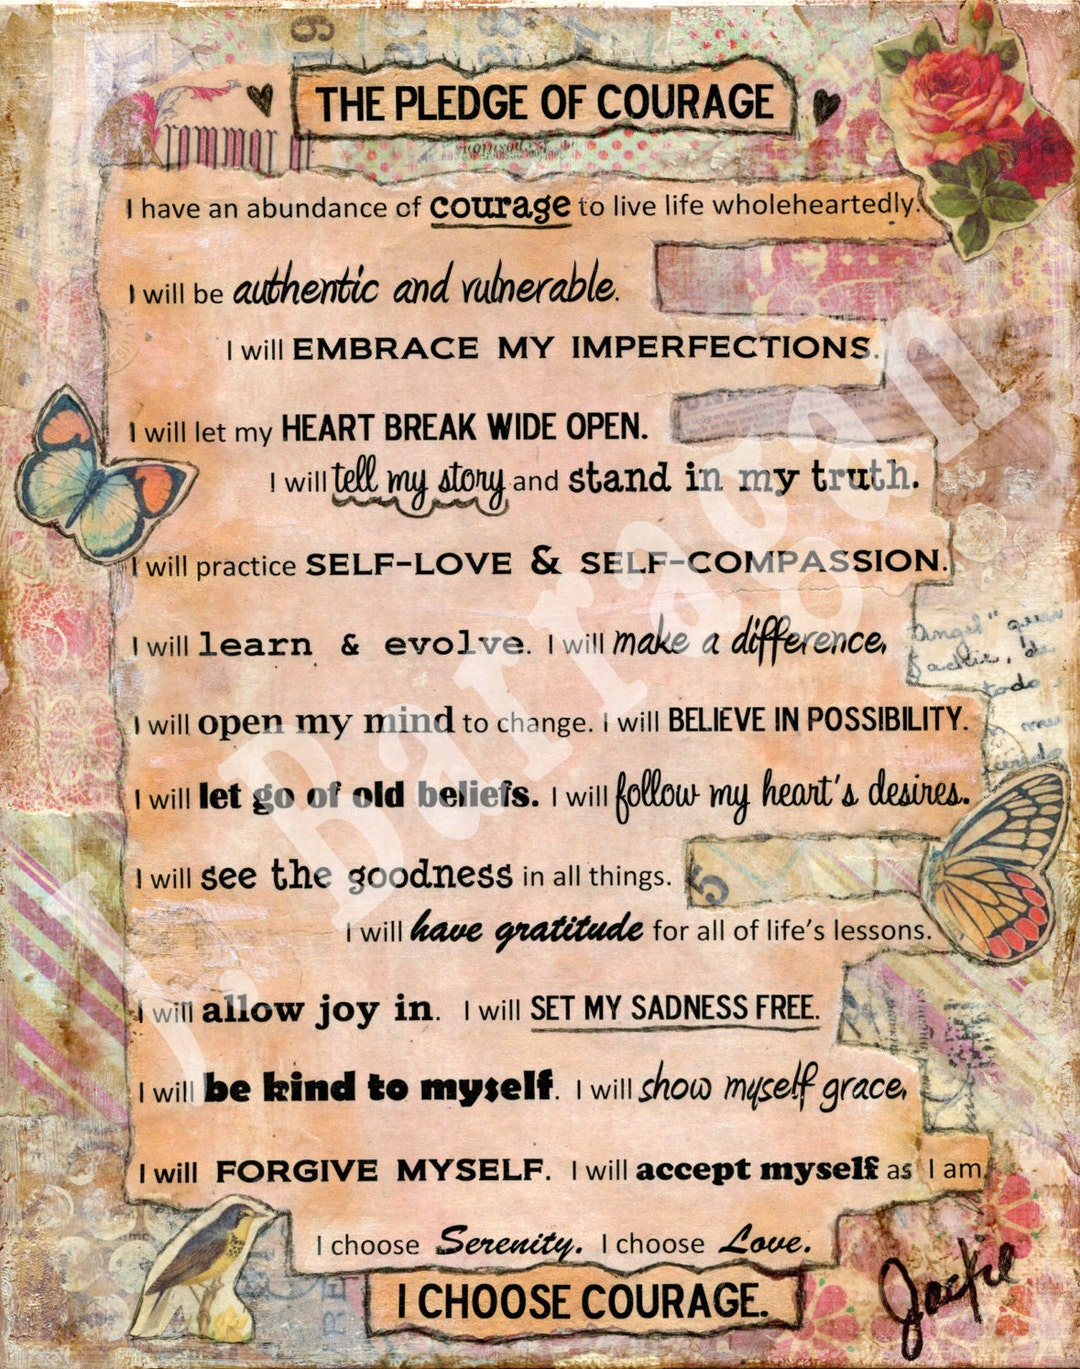 THE PLEDGE OF COURAGE
I have an abundance of courage to live life wholeheartedly.
I will be authentic and vulnerable.
I will EMBRACE MY IMPERFECTIONS.
I will let my HEART BREAK WIDE OPEN.
I will tell my story and stand in my truth.
I will practice SELF-LOVE & SELF-COMPASSION.
I will learn & evolve. I will make a difference.
I will open my mind to change. I will BELIEVE IN POSSIBILITY.
I will let go of old beliefs. I will follow my heart's desires.
I will see the goodness in all things.
5
I will have gratitude for all of life's lessons.
I will allow joy in. I will SET MY SADNESS FREE.
I will be kind to myself. I will show myself grace.
I will FORGIVE MYSELF. I will accept myself as I am
I choose Serenity. I choose Love.
I CHOOSE COURAGE.
Jackie
J. Barragan